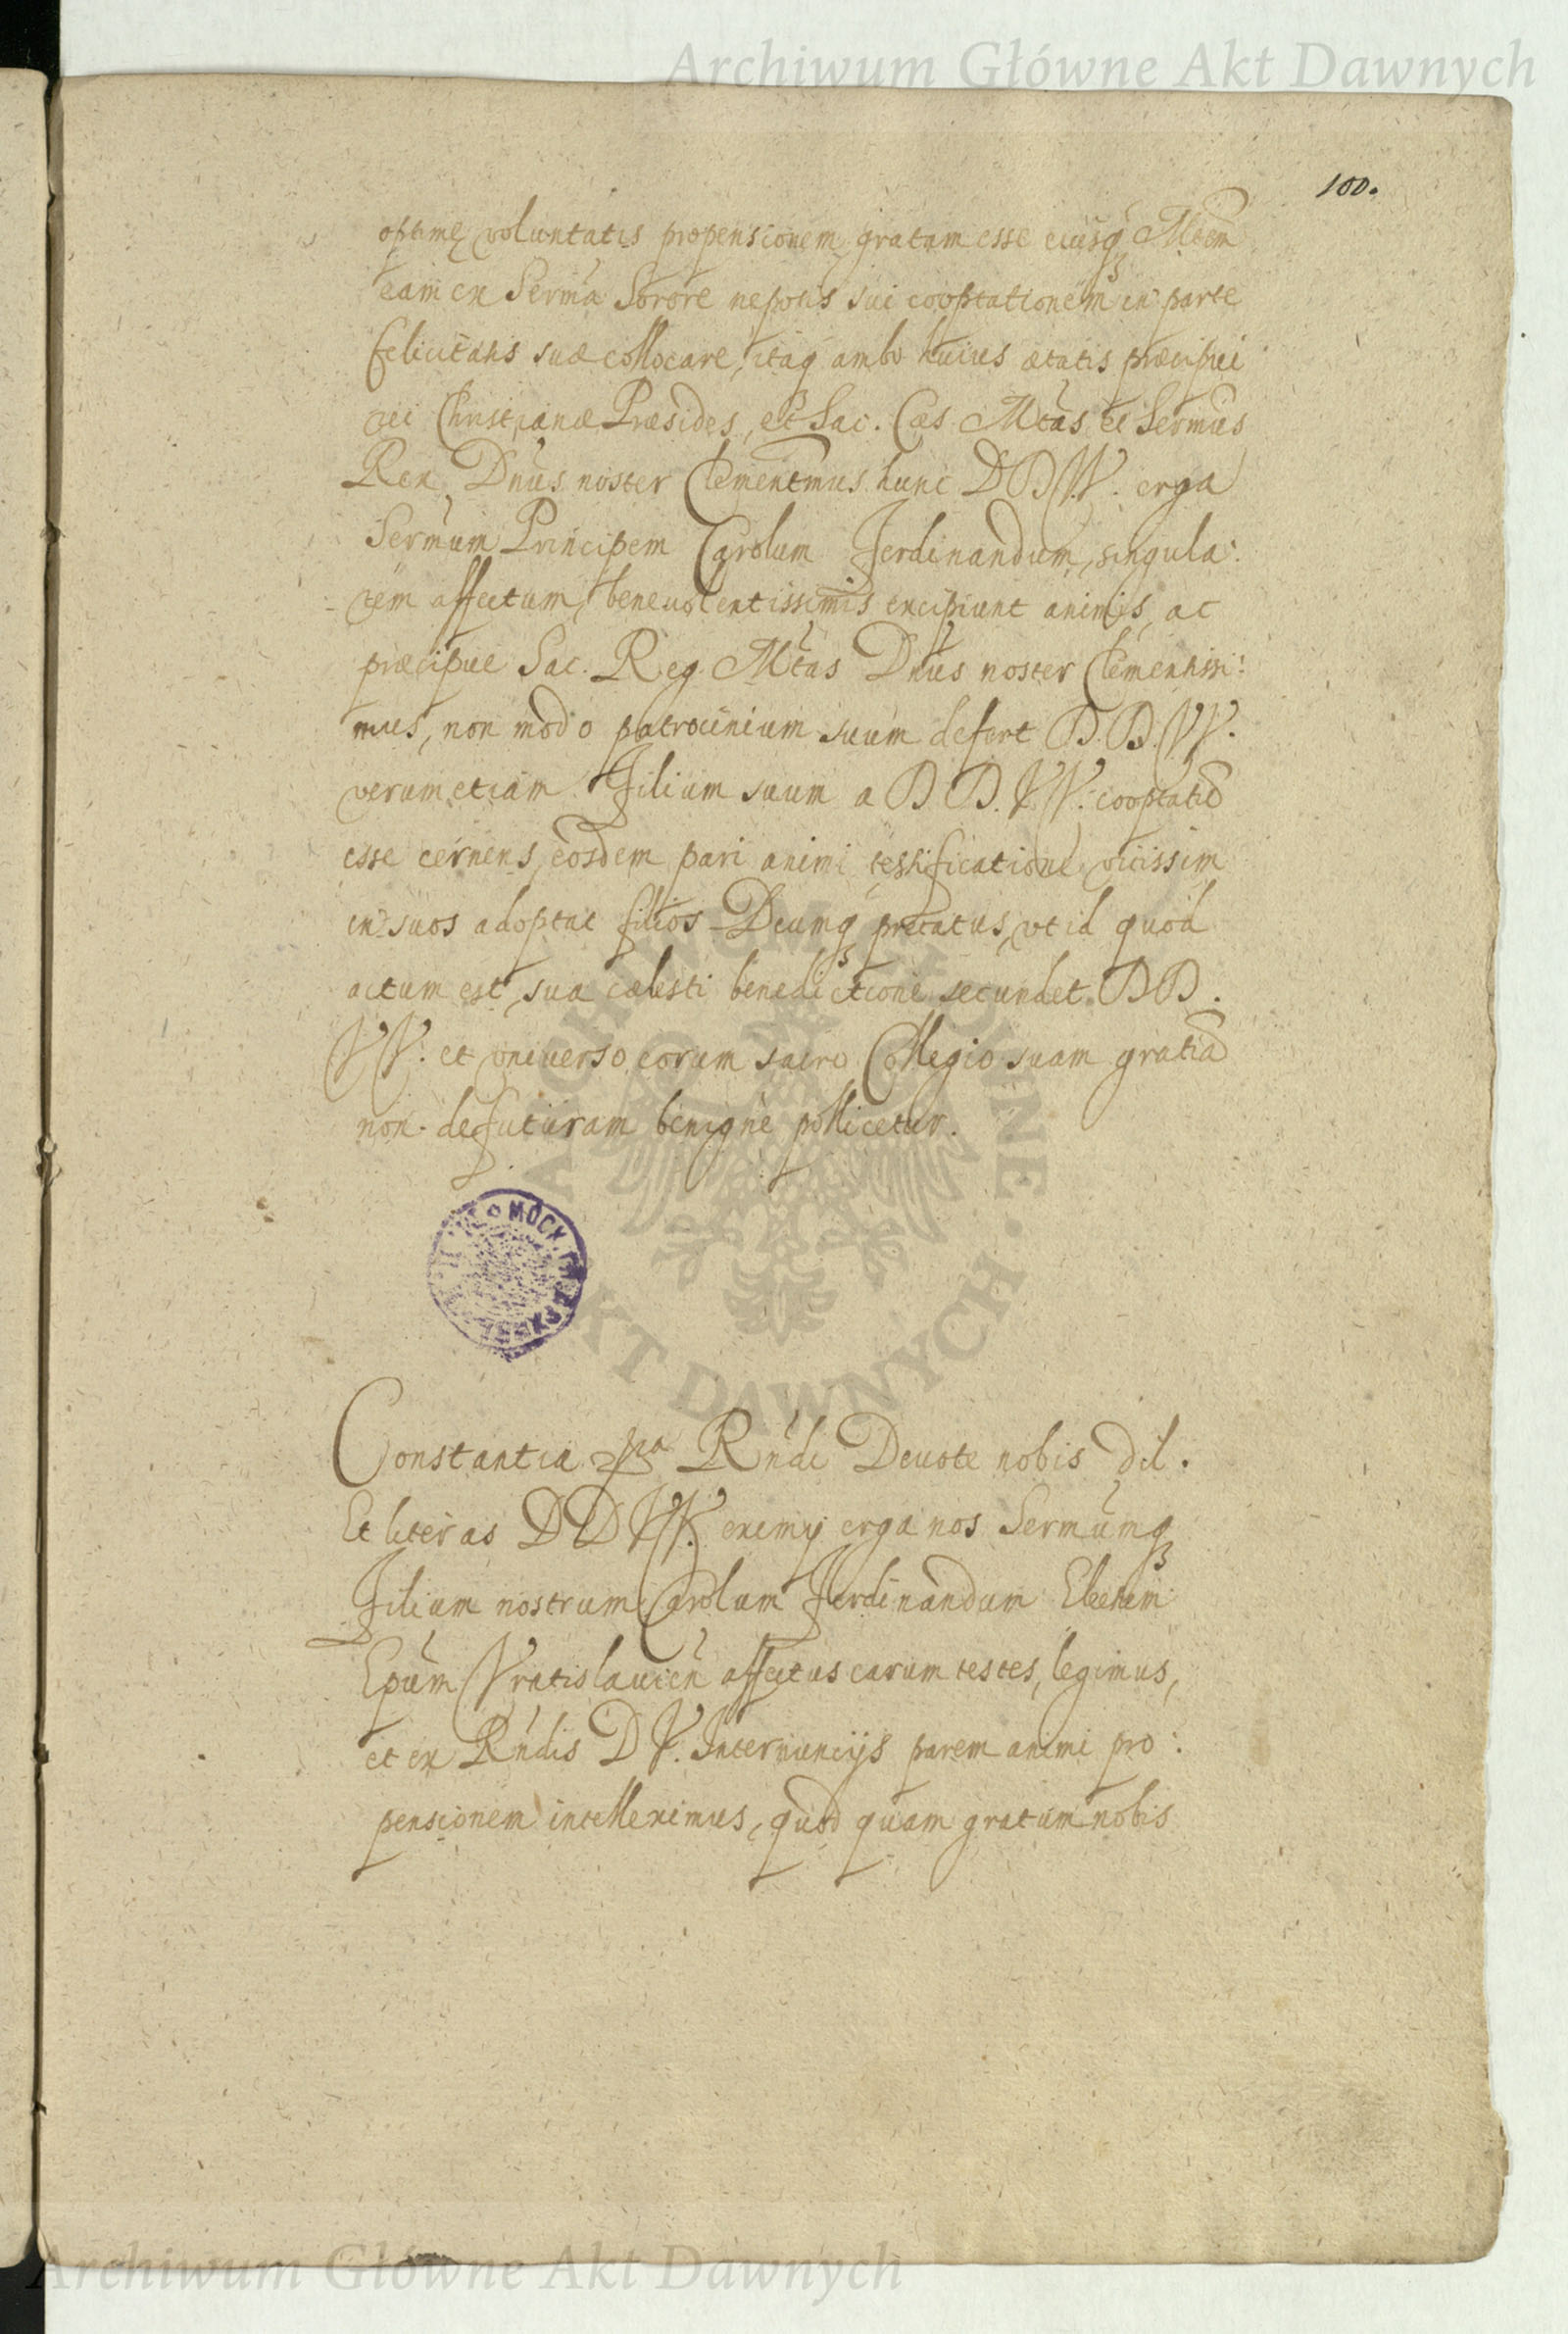 Archiwum Główne Akt Dawnych
100.
optimę voluntatis propensionem gratam esse eiusq Mtem
eam ex Serma Sorore nepotis sui cooptationem in parte
felicitatis suæ collocare, itaq ambo huius ætatis præcipui
rei Christianæ Præsides, et Sac. Cæs. Mtas et Sermus
Rex Dnus noster Clementmus hunc DD VV. erga
Sermum Principem Carolum Ferdinandum, singula:
rem affectum, beneuolentissimis excipiunt animis, ac
præcipue Sac. Reg. Mtas Dnus noster Clementissi:
mus, non modo patrocinium suum defert DD. VV.
verum etiam Filium suum a DD. VV. cooptatū
esse cernens, eosdem pari animi testificatione vicissim
in suos adoptat filios Deumq precatus, vt id quod
actum est, sua cælesti benedictione secundet. DD.
VV. et vniuerso eorum sacro Collegio suam gratiā
non defuturam benigne pollicetur.
ARCHIWUM GŁÓWNE AKT DAWNYCH
МОСК.
Constantia Rndi Deuote nobis dil.
Et literas DD VV. eximij erga nos Sermumq
Filium nostrum Carolum Ferdinandum Electum
Epum Vratislauien affectus earum testes, legimus,
et ex Rndis D V. Internuncijs parem animi pro:
pensionem intelleximus, quod quam gratum nobis
Archiwum Główne Akt Dawnych